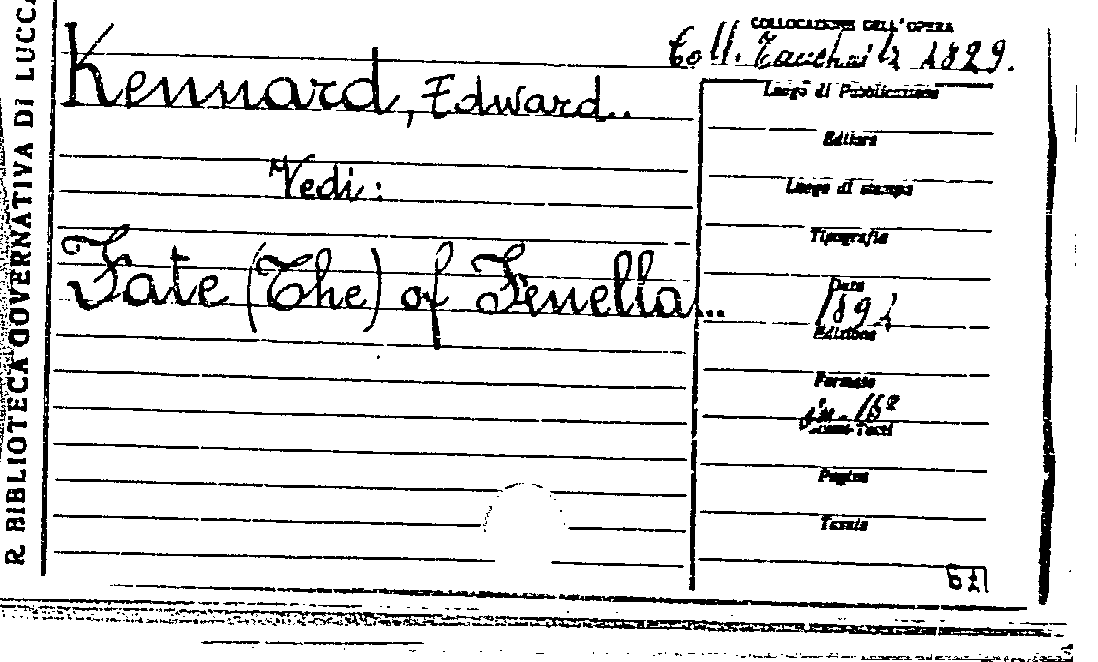 R. BIBLIOTECA GOVERNATIVA DI LUCCA
COLLOCAZIONE DELL'OPERA
Coll. Tauchnitz 1829.
Kennard, Edward..
Vedi:
Fate (The) of Fenella...
Luogo di Pubblicazione
Editore
Luogo di stampa
Tipografia
Data
Edizione
Formato
in-16°
Pagine
Tavole